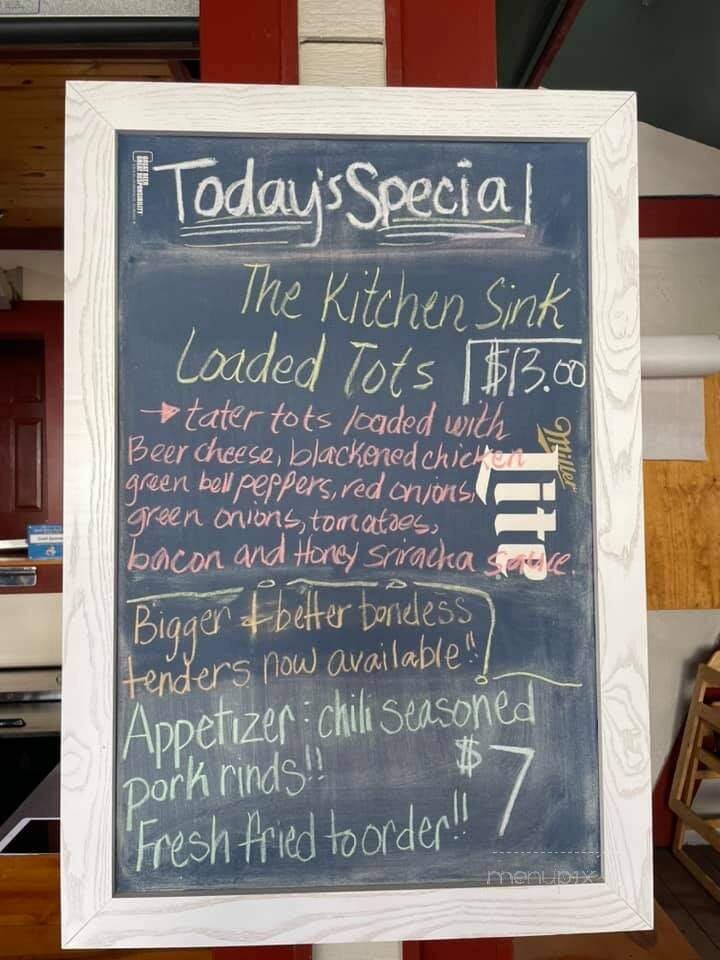 GREAT BEER
GREAT RESPONSIBILITY
Today's Special
The Kitchen Sink
Loaded Tots $13.00
→ tater tots loaded with
Beer cheese, blackened chicken
green bell peppers, red onions,
green onions, tomatoes,
bacon and Honey sriracha sauce.
Miller
Lite
Bigger + better boneless
tenders now available!!
Appetizer: chili seasoned
pork rinds!! $7
Fresh fried to order!!
menupix